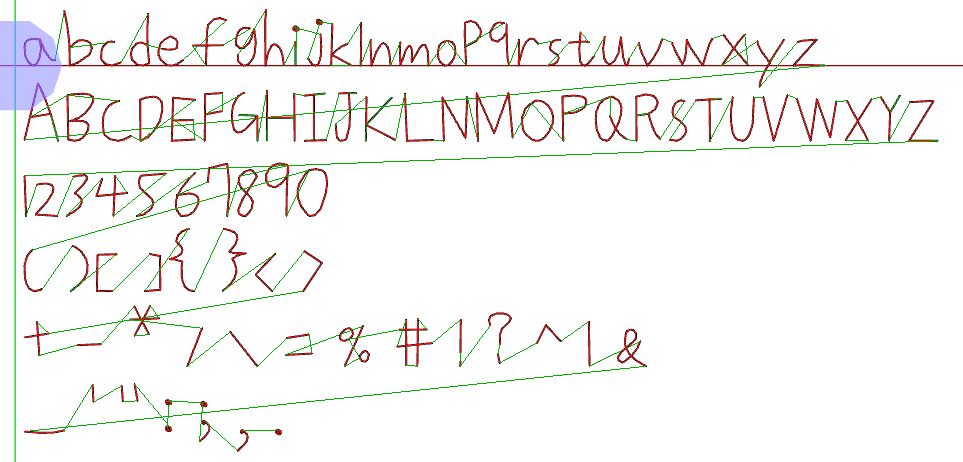 abcdefghijklnmopqrstuvwxyz
ABCDEFGHIJKLNMOPQRSTUVWXYZ
1234567890
()[]{}<>
+-*/\=%#!?^|&
_'":;,.